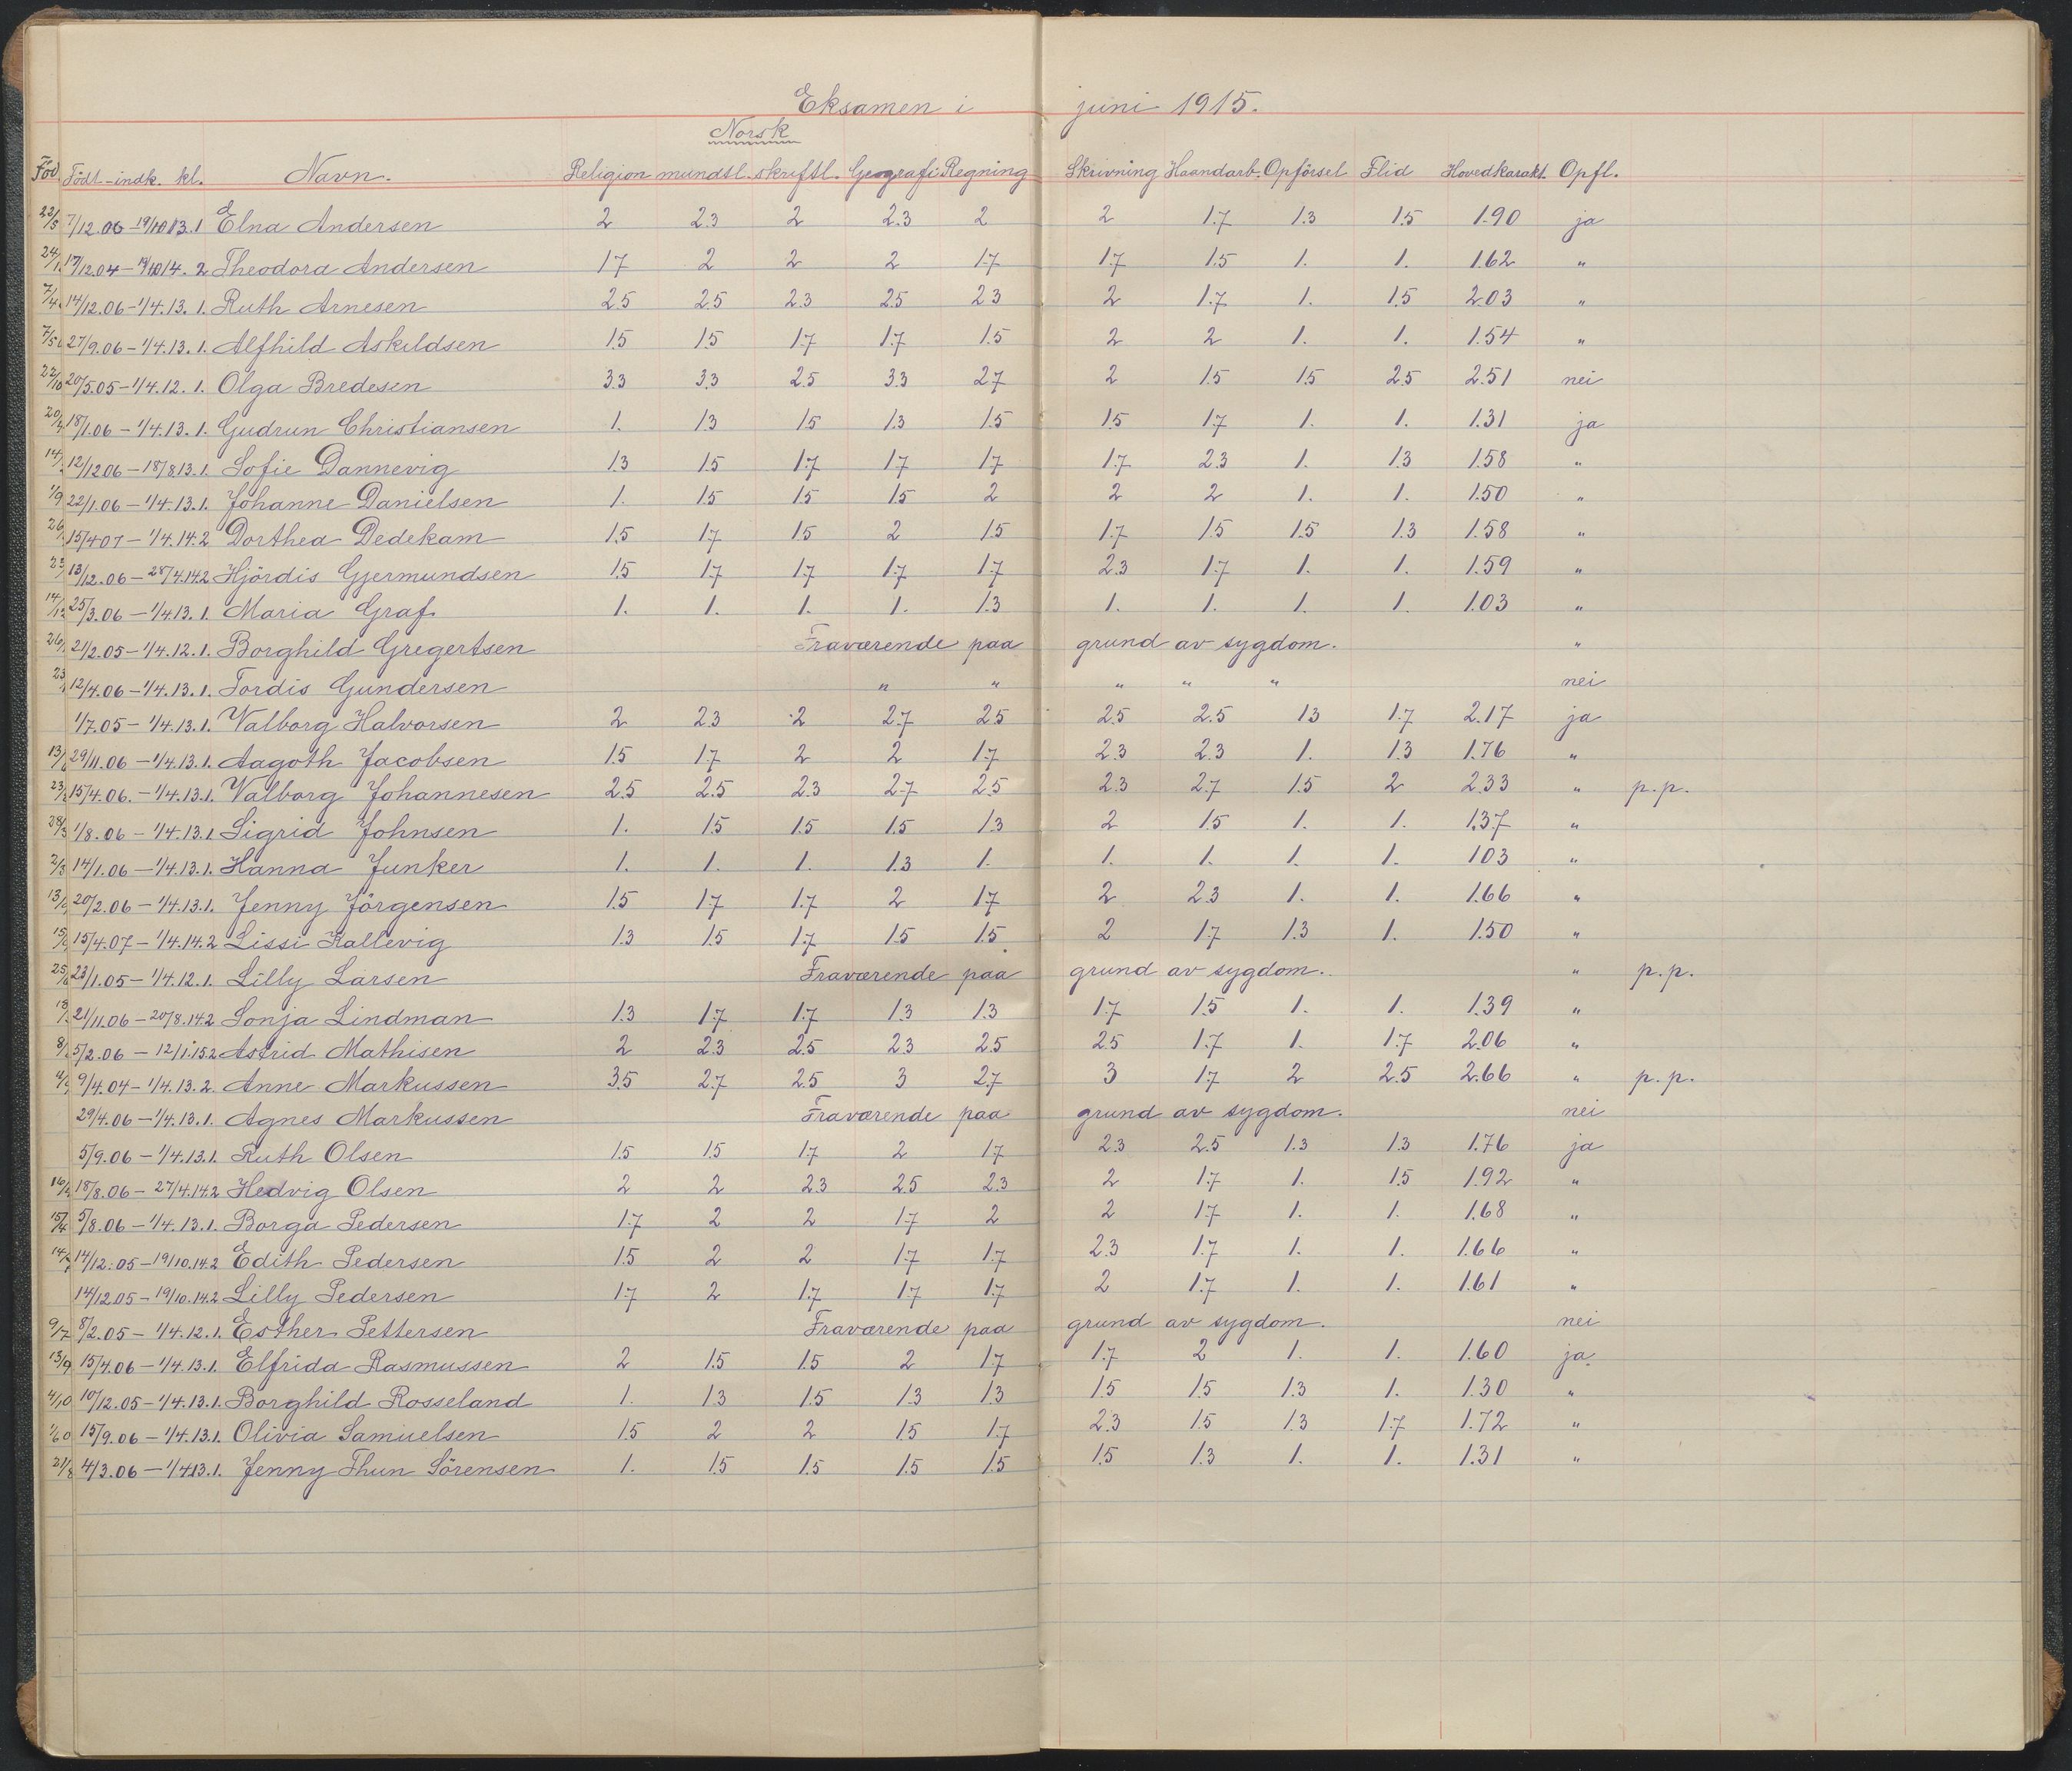 Eksamen i juni 1915.
Norsk
Föd. Födt - indk. kl. Navn. Religion mundtl. skriftl. Geografi Regning Skrivning Haandarb. Opförsel Flid Hovedkarakt. Opfl.
22/5 7/12.06 - 19/10 13.1 Elna Andersen 2 2.3 2 2.3 2 2 1.7 1.3 1.5 1.90 ja
17/12.04 - 19/10 14. 2 Theodora Andersen 1.7 2 2 2 1.7 1.7 1.5 1. 1. 1.62 "
7/4 14/12.06 - 1/4.13. 1. Ruth Arnesen 2.5 2.5 2.3 2.5 2.3 2 1.7 1. 1.5 2.03 "
7/5 27/9.06 - 1/4.13. 1. Alfhild Askildsen 1.5 1.5 1.7 1.7 1.5 2 2 1. 1. 1.54 "
22/10 20/5.05 - 1/4.12. 1. Olga Bredesen 3.3 3.3 2.5 3.3 2.7 2 1.5 1.5 2.5 2.51 nei
20/4 18/1.06 - 1/4.13. 1. Gudrun Christiansen 1. 1.3 1.5 1.3 1.5 1.5 1.7 1. 1. 1.31 ja
12/12 06 - 18/8.13. 1. Sofie Dannevig 1.3 1.5 1.7 1.7 1.7 1.7 2.3 1. 1.3 1.58 "
1/9 22/1.06 - 1/4.13.1. Johanne Danielsen 1. 1.5 1.5 1.5 2 2 2 1. 1. 1.50 "
15/4 07 - 1/4.14.2 Dorthea Dedekam 1.5 1.7 1.5 2 1.5 1.7 1.5 1.5 1.3 1.58 "
13/12.06 - 28/4.14.2 Hjördis Gjermundsen 1.5 1.7 1.7 1.7 1.7 2.3 1.7 1. 1. 1.59 "
14/12 25/3.06 - 1/4.13. 1. Maria Graf 1. 1. 1. 1. 1.3 1. 1. 1. 1. 1.03 "
21/2.05 - 1/4.12. 1. Borghild Gregertsen Fraværende paa grund av sygdom. "
12/4.06 - 1/4.13. 1. Tordis Gundersen " " " " " nei
1/7.05 - 1/4.13.1. Valborg Halvorsen 2 2.3 2 2.7 2.5 2.5 2.5 1.3 1.7 2.17 ja
29/11.06 - 1/4.13.1. Aagoth Jacobsen 1.5 1.7 2 2 1.7 2.3 2.3 1. 1.3 1.76 "
15/4.06. - 1/4.13.1. Valborg Johannesen 2.5 2.5 2.3 2.7 2.5 2.3 2.7 1.5 2 2.33 " p.p.
28/3 1/8.06 - 1/4.13.1 Sigrid Johnsen 1. 1.5 1.5 1.5 1.3 2 1.5 1. 1. 1.37 "
2/8 14/1.06 - 1/4.13.1. Hanna Junker 1. 1. 1. 1.3 1. 1. 1. 1. 1. 1.03 "
20/2.06 - 1/4.13.1. Jenny Jörgensen 1.5 1.7 1.7 2 1.7 2 2.3 1. 1. 1.66 "
15/4.07 - 1/4.14.2 Lissi Kallevig 1.3 1.5 1.7 1.5 1.5 2 1.7 1.3 1. 1.50 "
23/1.05 - 1/4.12.1. Lilly Larsen Fraværende paa grund av sygdom. " p.p.
21/11.06 - 20/8.14.2 Sonja Lindman 1.3 1.7 1.7 1.3 1.3 1.7 1.5 1. 1. 1.39 "
5/2.06 - 12/1.15.2 Astrid Mathisen 2 2.3 2.5 2.3 2.5 2.5 1.7 1. 1.7 2.06 "
9/4.04 - 1/4.13.2. Anne Markussen 3.5 2.7 2.5 3 2.7 3 1.7 2 2.5 2.66 " p.p.
29/4.06 - 1/4.13.1. Agnes Markussen Fraværende paa grund av sygdom. nei
5/9.06 - 1/4.13.1. Ruth Olsen 1.5 1.5 1.7 2 1.7 2.3 2.5 1.3 1.3 1.76 ja
18/8.06 - 27/4.14.2 Hedvig Olsen 2 2 2.3 2.5 2.3 2 1.7 1. 1.5 1.92 "
15/4 5/8.06 - 1/4.13.1. Borga Pedersen 1.7 2 2 1.7 2 2 1.7 1. 1. 1.68 "
14/12.05 - 19/10.14.2 Edith Pedersen 1.5 2 2 1.7 1.7 2.3 1.7 1. 1. 1.66 "
14/12 05 - 19/10.14.2 Lilly Pedersen 1.7 2 1.7 1.7 1.7 2 1.7 1. 1. 1.61 "
9/7 8/2.05 - 1/4.12.1. Esther Pettersen Fraværende paa grund av sygdom. nei
13/9 15/4.06 - 1/4.13.1. Elfrida Rasmussen 2 1.5 1.5 2 1.7 1.7 2 1. 1. 1.60 ja
4/10 10/12.05 - 1/4.13.1. Borghild Rosseland 1. 1.3 1.5 1.3 1.3 1.5 1.5 1.3 1. 1.30 "
15/9.06 - 1/4.13.1. Olivia Samuelsen 1.5 2 2 1.5 1.7 2.3 1.5 1.3 1.7 1.72 "
21/8 4/3.06 - 1/4 13.1. Jenny Thun Sörensen 1. 1.5 1.5 1.5 1.5 1.5 1.3 1. 1. 1.31 "